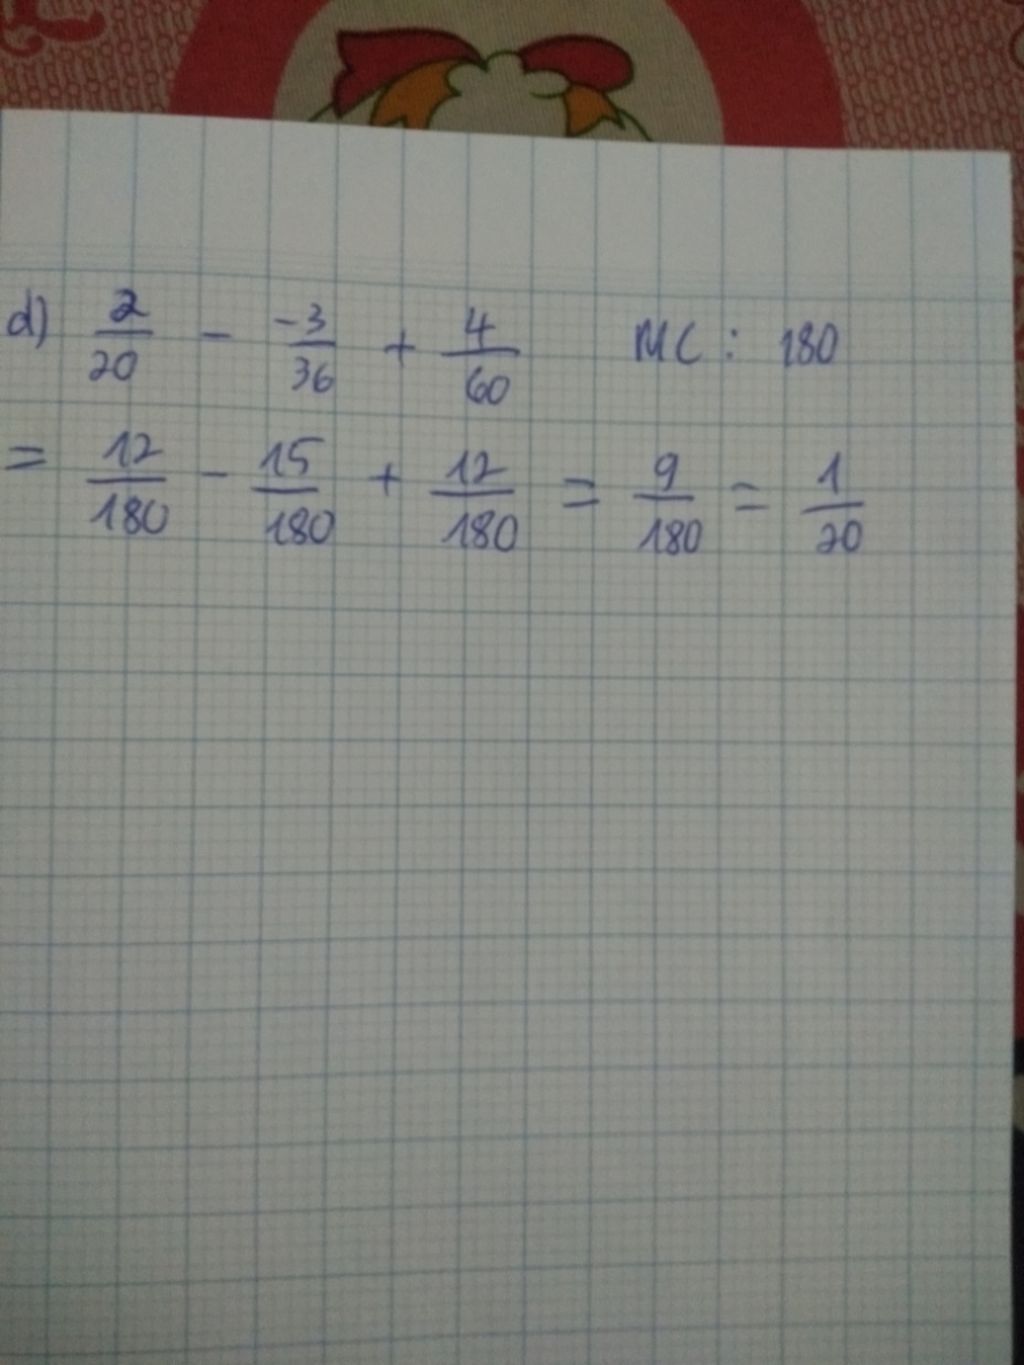 d) 2/20 - -3/36 + 4/60 MC : 180
= 12/180 - 15/180 + 12/180 = 9/180 = 1/20